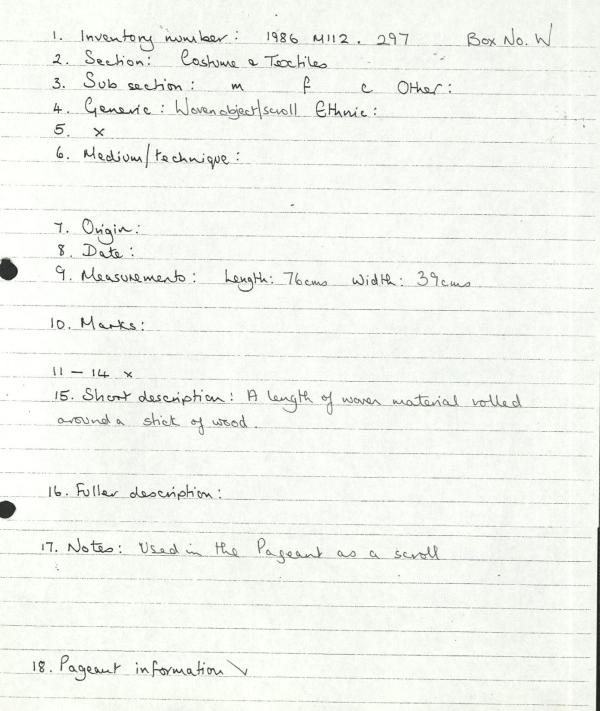 1. Inventory number: 1986 M112. 297 Box No. W
2. Section: Costume & Textiles
3. Sub section: m f c Other:
4. Generic: Woven object/scroll Ethnic:
5. x
6. Medium/technique:
7. Origin:
8. Date:
9. Measurements: Length: 76cms Width: 39cms
10. Marks:
11 - 14 x
15. Short description: A length of woven material rolled
around a stick of wood.
16. Fuller description:
17. Notes: Used in the Pageant as a scroll
18. Pageant information